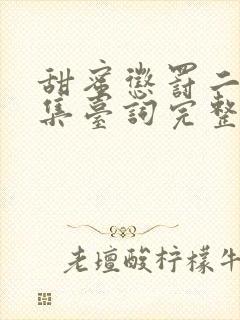 甜蜜懲罰二
集臺詞完整
老壇酸柠檬牛